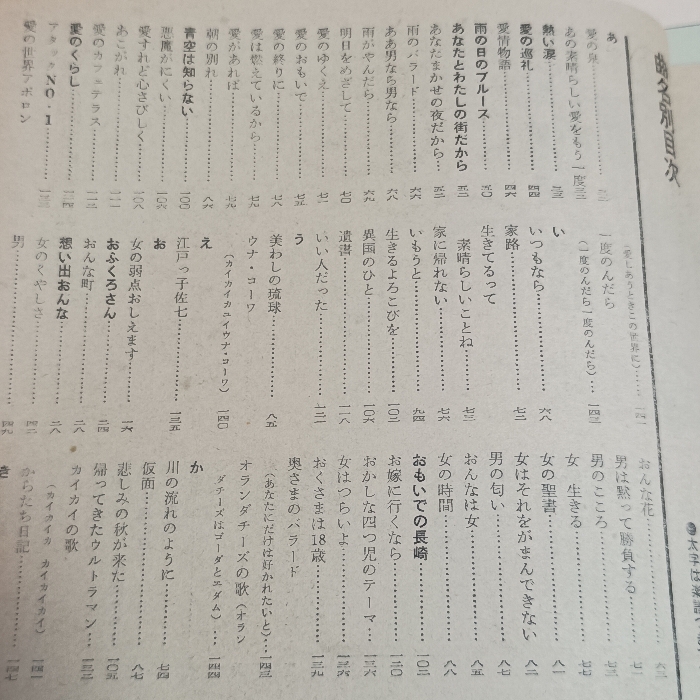 曲名別目次
●太字は楽譜
あ
愛の泉
あの素晴らしい愛をもう一度
熱い涙
愛の巡礼 四四
愛情物語 四六
雨の日のブルース 五〇
あなたとわたしの街だから 五二
あなたまかせの夜だから 五二
雨のバラード 六六
ああ男なら男なら 六八
雨がやんだら 六九
明日をめざして 七〇
愛のゆくえ 七一
愛のおもいで 七五
愛の終りに 七八
愛は燃えているから 七九
愛があれば 七九
朝の別れ 八六
青空は知らない 一〇〇
悪魔がにくい 一〇六
愛すれど心さびしく 一〇八
あこがれ 一一一
愛のカフェテラス 一一三
愛のくらし 一二四
アタックNO・1 一三三
愛の世界アポロン
(愛しあうときこの世界に) 一四一
一度のんだら
(一度のんだら一度のんだら) 一四二
い
いつもなら 六八
家路 七二
生きてるって
素晴らしいことね 七六
家に帰れない 七六
いもうと 九四
生きるよろこびを 一〇三
異国のひと 一〇六
遺書 一一八
いい人だった 一二一
う
美わしの琉球 八五
ウナ・コーワ
(カイカイカユイウナ・コーワ) 一四〇
え
江戸っ子佐七 一三五
お
女の弱点おしえます 一六
おふくろさん 二四
おんな町 二八
想い出おんな 二八
女のくやしさ 四二
男 四九
おんな花 六三
男は黙って勝負する 七一
男のこころ 七三
女 生きる 七七
女の聖書 八一
女はそれをがまんできない 八二
男の匂い 八七
おんなは女 八五
女の時間 八八
おもいでの長崎 一〇二
お嫁に行くなら 一二〇
おかしな四つ児のテーマ 一三六
女はつらいよ 一三六
おくさまは18歳 一三九
奥さまのバラード
(あなたにだけは好かれたいと) 一四三
オランダチーズの歌(オラン
ダチーズはゴーダとエダム) 一四四
か
川の流れのように 七四
仮面 八七
悲しみの秋が来た 一〇五
帰ってきたウルトラマン 一三二
カイカイの歌
(カイカイカ カイカイカイ) 一四一
からたち日記 一四七
き